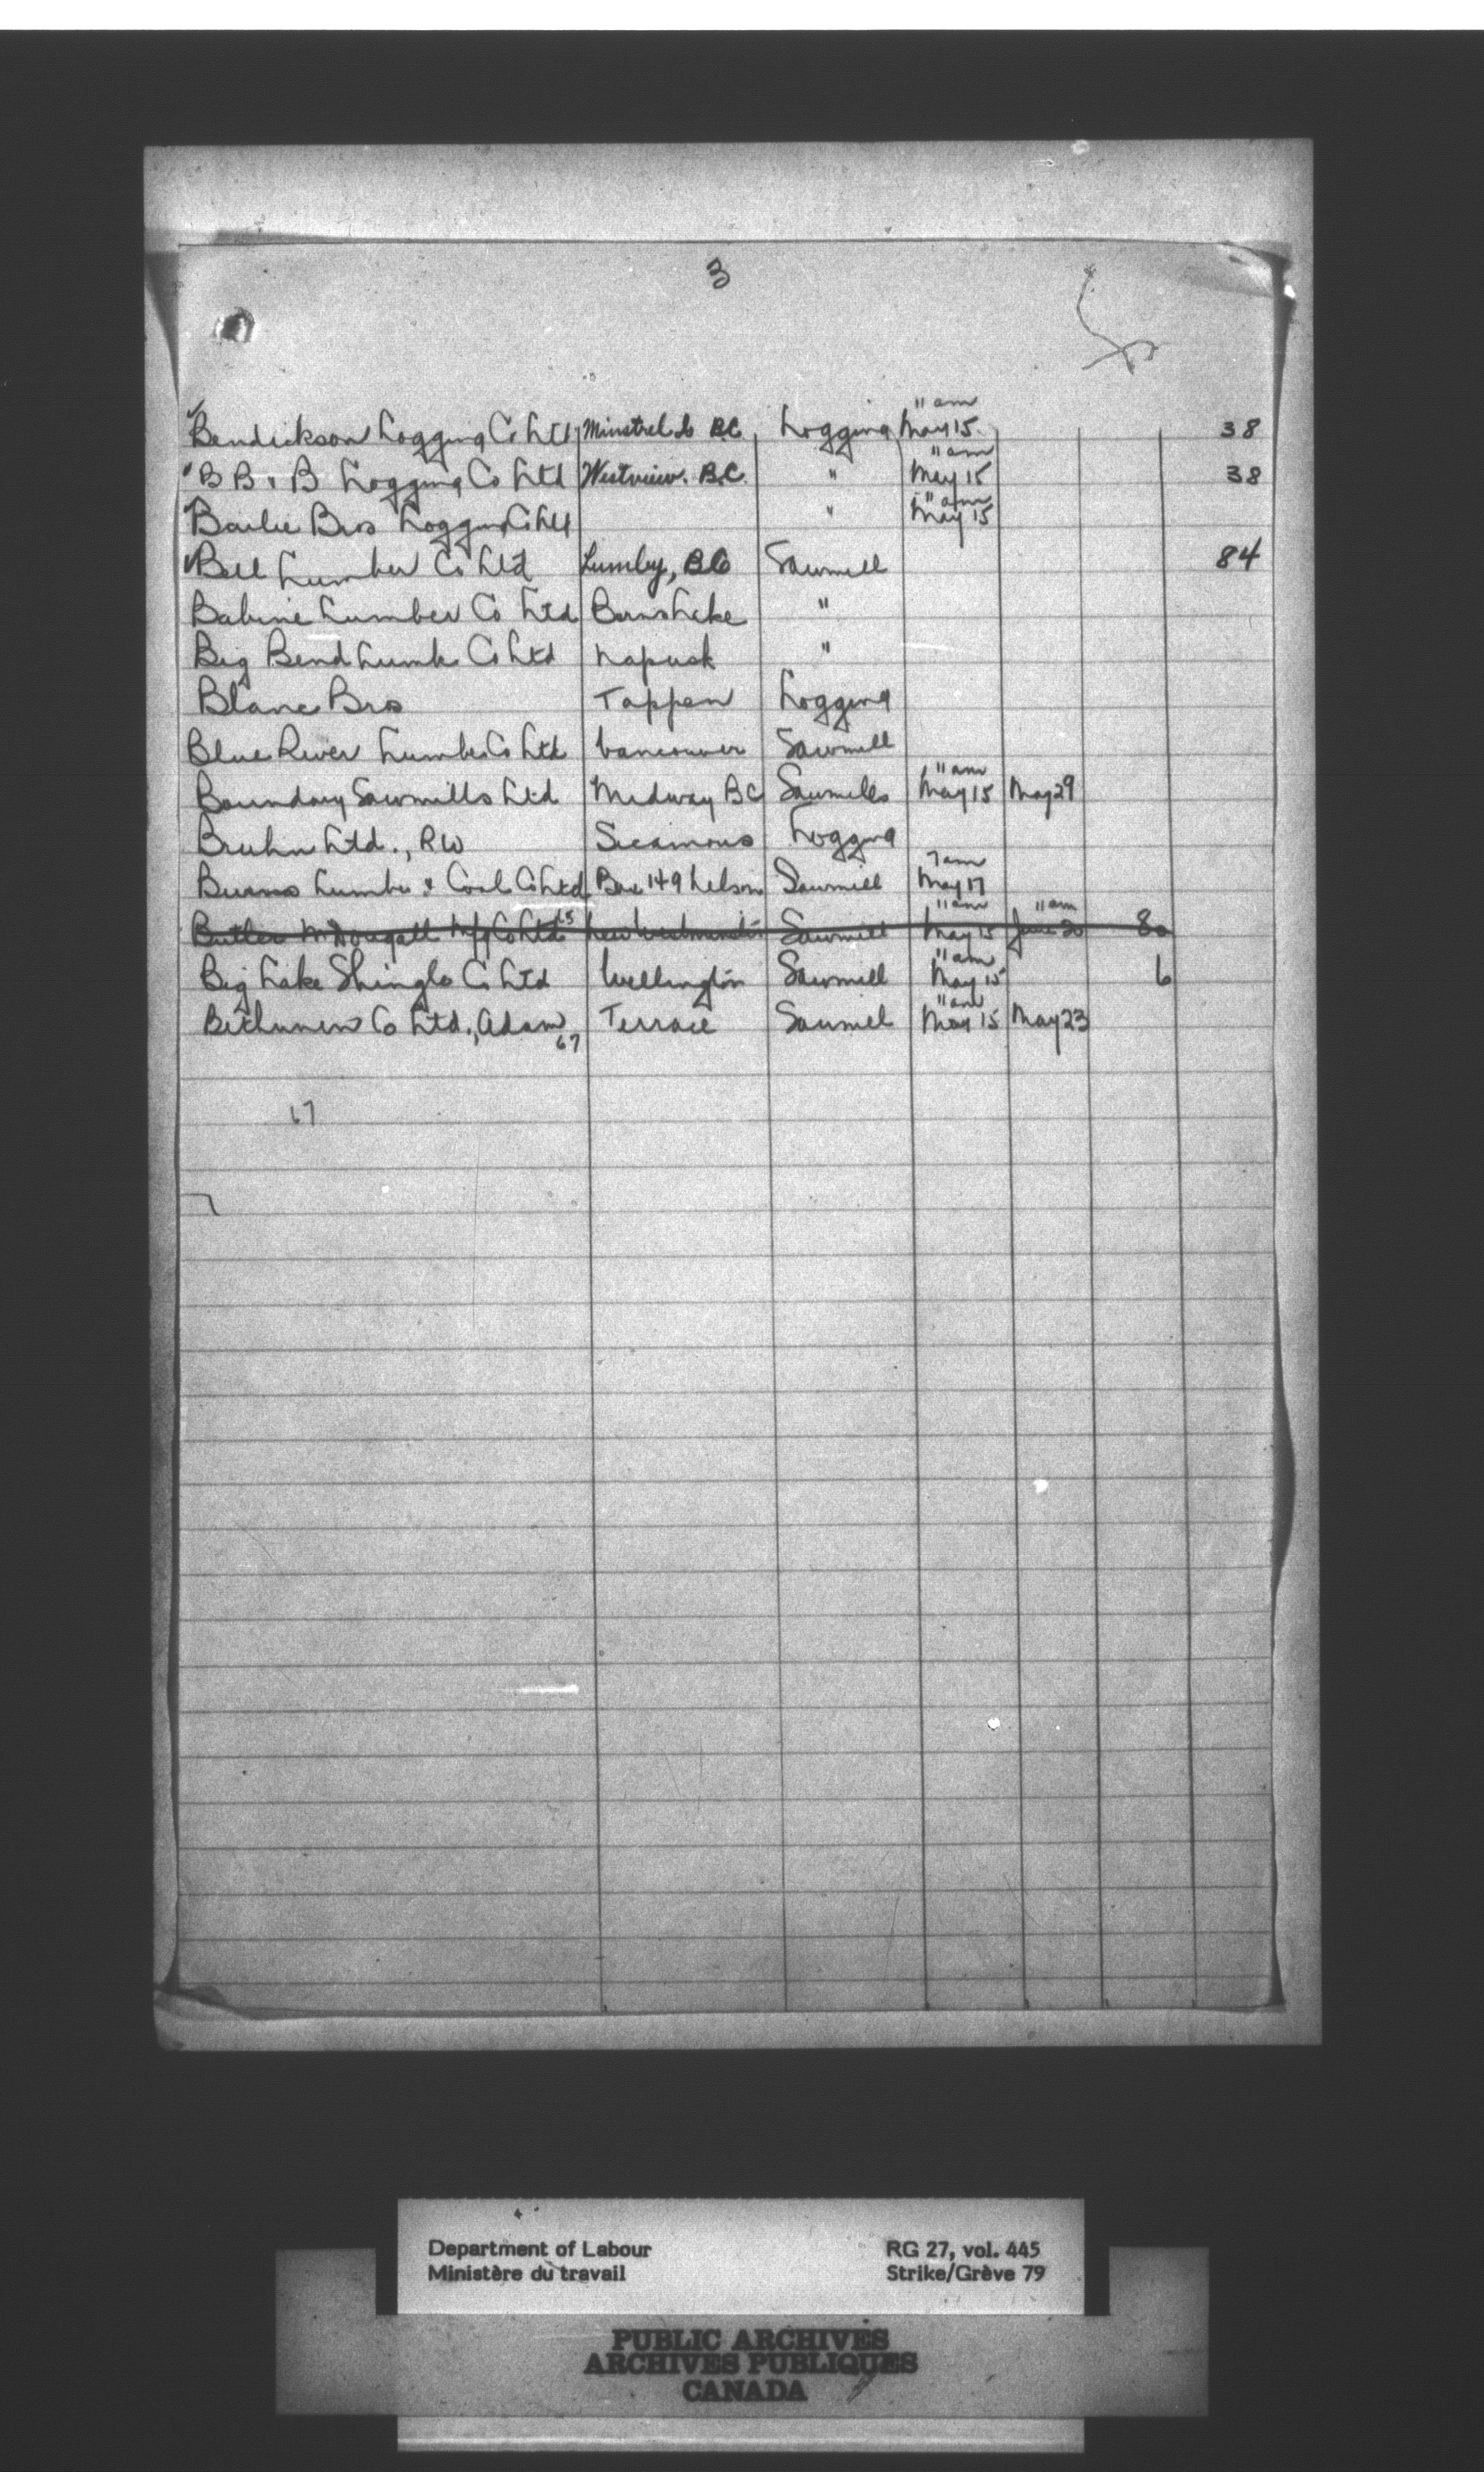 3
11 am
Bendickson Logging Co Ltd Minstrel Is BC Logging May 15 38
11 am
B B & B Logging Co Ltd Westview. B.C. " May 15 38
11 am
Bailie Bros Logging Co Ltd " May 15
Bell Lumber Co Ltd Lumby, BC Sawmill 84
Babine Lumber Co Ltd Burns Lake "
Big Bend Lumber Co Ltd Nakusp "
Blanc Bros Tappen Logging
Blue River Lumber Co Ltd Vancouver Sawmill
11 am
Boundary Sawmills Ltd Midway BC Sawmills May 15 May 29
Bruhn Ltd., RW Sicamous Logging
7 am
Burns Lumber & Coal Co Ltd Box 149 Nelson Sawmill May 17
11 am 11 am
Butler McDougall Mfg Co Ltd 65 New Westminster Sawmill May 15 June 20 80
11 am
Big Lake Shingle Co Ltd Wellington Sawmill May 15 6
11 am
Bethunen Co Ltd., Adam Terrace Sawmill May 15 May 23
67
67
Department of Labour RG 27, vol. 445
Ministère du travail Strike/Grève 79
PUBLIC ARCHIVES
ARCHIVES PUBLIQUES
CANADA